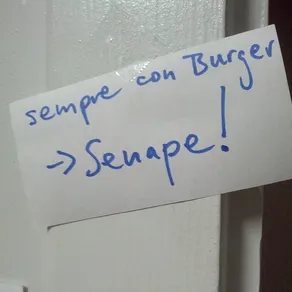 sempre con Burger
→ Senape!